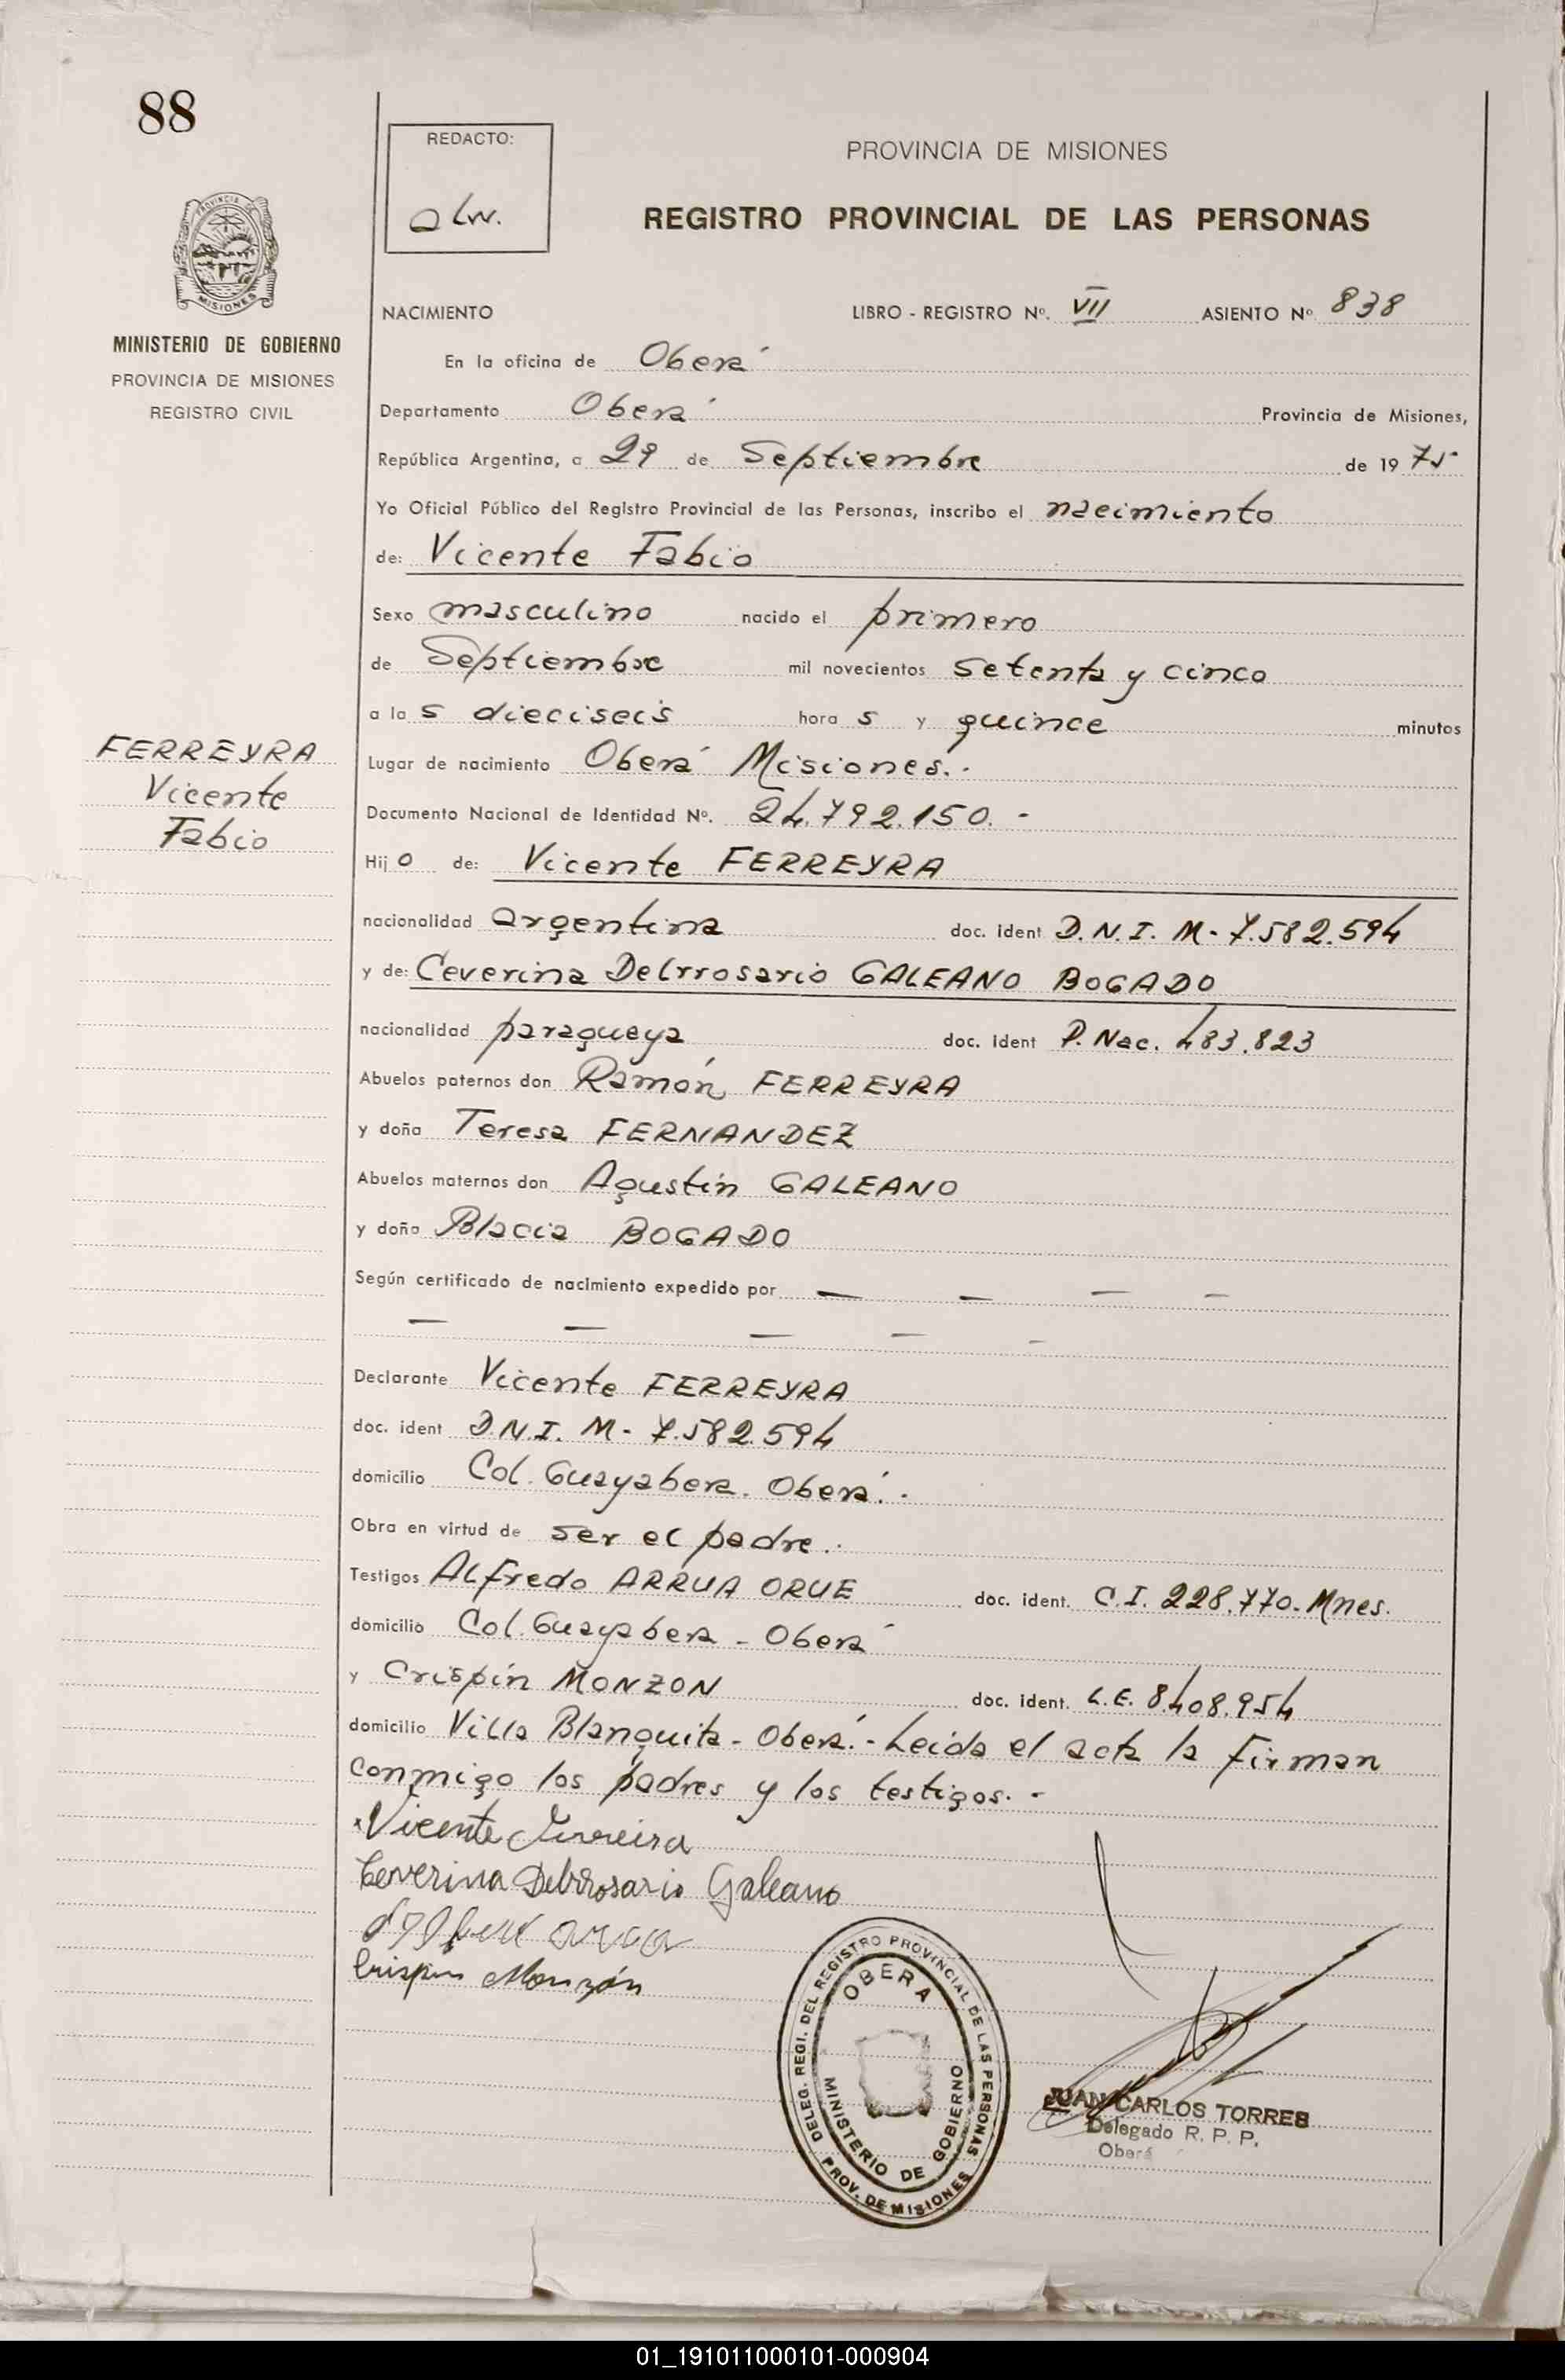 88
REDACTO:
alw.
PROVINCIA DE MISIONES
REGISTRO PROVINCIAL DE LAS PERSONAS
PROVINCIA DE
MISIONES
MINISTERIO DE GOBIERNO
PROVINCIA DE MISIONES
REGISTRO CIVIL
NACIMIENTO LIBRO - REGISTRO Nº. VII ASIENTO Nº 838
En la oficina de Oberá
Departamento Oberá Provincia de Misiones,
República Argentina, a 29 de Septiembre de 19 75
Yo Oficial Público del Registro Provincial de las Personas, inscribo el nacimiento
de: Vicente Fabio
Sexo masculino nacido el primero
de Septiembre mil novecientos setenta y cinco
a la s dieciseis hora s y quince minutos
FERREYRA
Vicente
Fabio
Lugar de nacimiento Oberá Misiones.-
Documento Nacional de Identidad Nº. 24.792.150.-
Hij o de: Vicente FERREYRA
nacionalidad argentina doc. ident D.N.I. M- 7.582.594
y de: Ceverina Delrrosario GALEANO BOGADO
nacionalidad paragueya doc. ident P. Nac. 483.823
Abuelos paternos don Ramón FERREYRA
y doña Teresa FERNANDEZ
Abuelos maternos don Agustín GALEANO
y doña Blacia BOGADO
Según certificado de nacimiento expedido por — — — —
— — — — —
Declarante Vicente FERREYRA
doc. ident D.N.I. M- 7.582.594
domicilio Col. Guayabera. Oberá.-
Obra en virtud de ser el padre.-
Testigos ALfredo ARRUA ORUE doc. ident. C.I. 228.770- Mnes.
domicilio Col. Guayabera - Oberá
y Crispín MONZON doc. ident. L.E. 8.408.954
domicilio Villa Blanquita - Oberá.- Leida el acta la firman
conmigo los padres y los testigos.-
Vicente Ferreira
Ceverina Delrrosario Galeano
Crispin Monzón
DELEG. REGI. DEL REGISTRO PROVINCIAL DE LAS PERSONAS
OBERA
MINISTERIO DE GOBIERNO
PROV. DE MISIONES
JUAN CARLOS TORRES
Delegado R. P. P.
Oberá
01_191011000101-000904